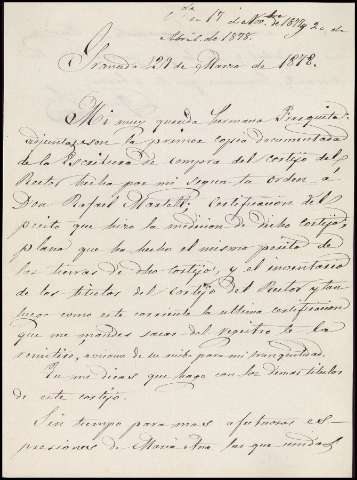 en 17 de Nov.bre de 1877 y 2 de
Abril de 1878.
Granada 29 de Marzo de 1878.
Mi muy querida hermana Frasquita:
adjuntas son la primera copia documentada
de la Escritura de compra del cortijo del
Rector hecha por mi segun tu orden á
Don Rafael Martell; certificacion del
perito que hizo la medicion de dicho cortijo,
plano que ha hecho el mismo perito de
las tierras de dho cortijo, y el inventario
de los titulos del cortijo del Rector y tan
luego como este corriente la ultima certificacion
que me mandes sacar del registro te la
remitiré, avisame de su recibo para mi tranquilidad.
Tu me dices que hago con los demas titulos
de este cortijo.
Sin tiempo para mas afectuosas es-
presiones de Maria Ana las que unidas